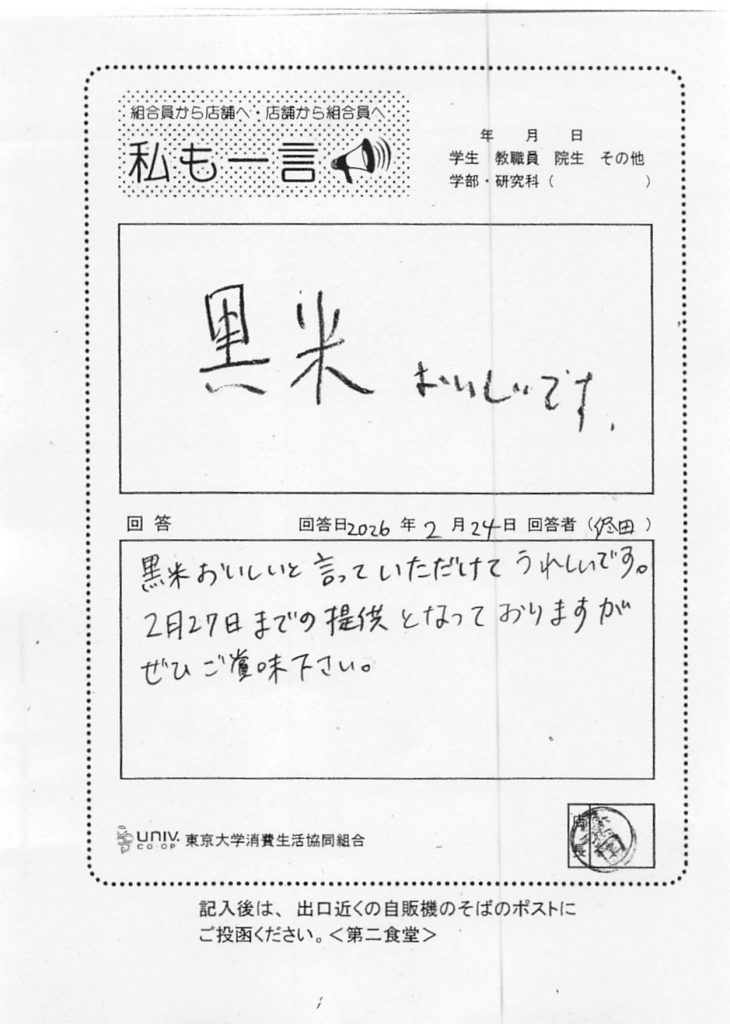 組合員から店舗へ・店舗から組合員へ
私も一言
年 月 日
学生 教職員 院生 その他
学部・研究科（ ）
黒米 おいしいです.
回答 回答日2026年2月24日 回答者（ 田）
黒米おいしいと言っていただけてうれしいです。
2月27日までの提供となっておりますが
ぜひご賞味下さい。
UNIV. CO-OP 東京大学消費生活協同組合
店長
記入後は、出口近くの自販機のそばのポストに
ご投函ください。＜第二食堂＞